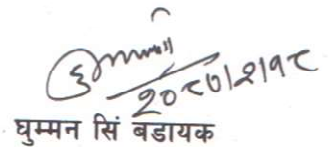 २०८७।२।१८
घुम्मन सिं बडायक